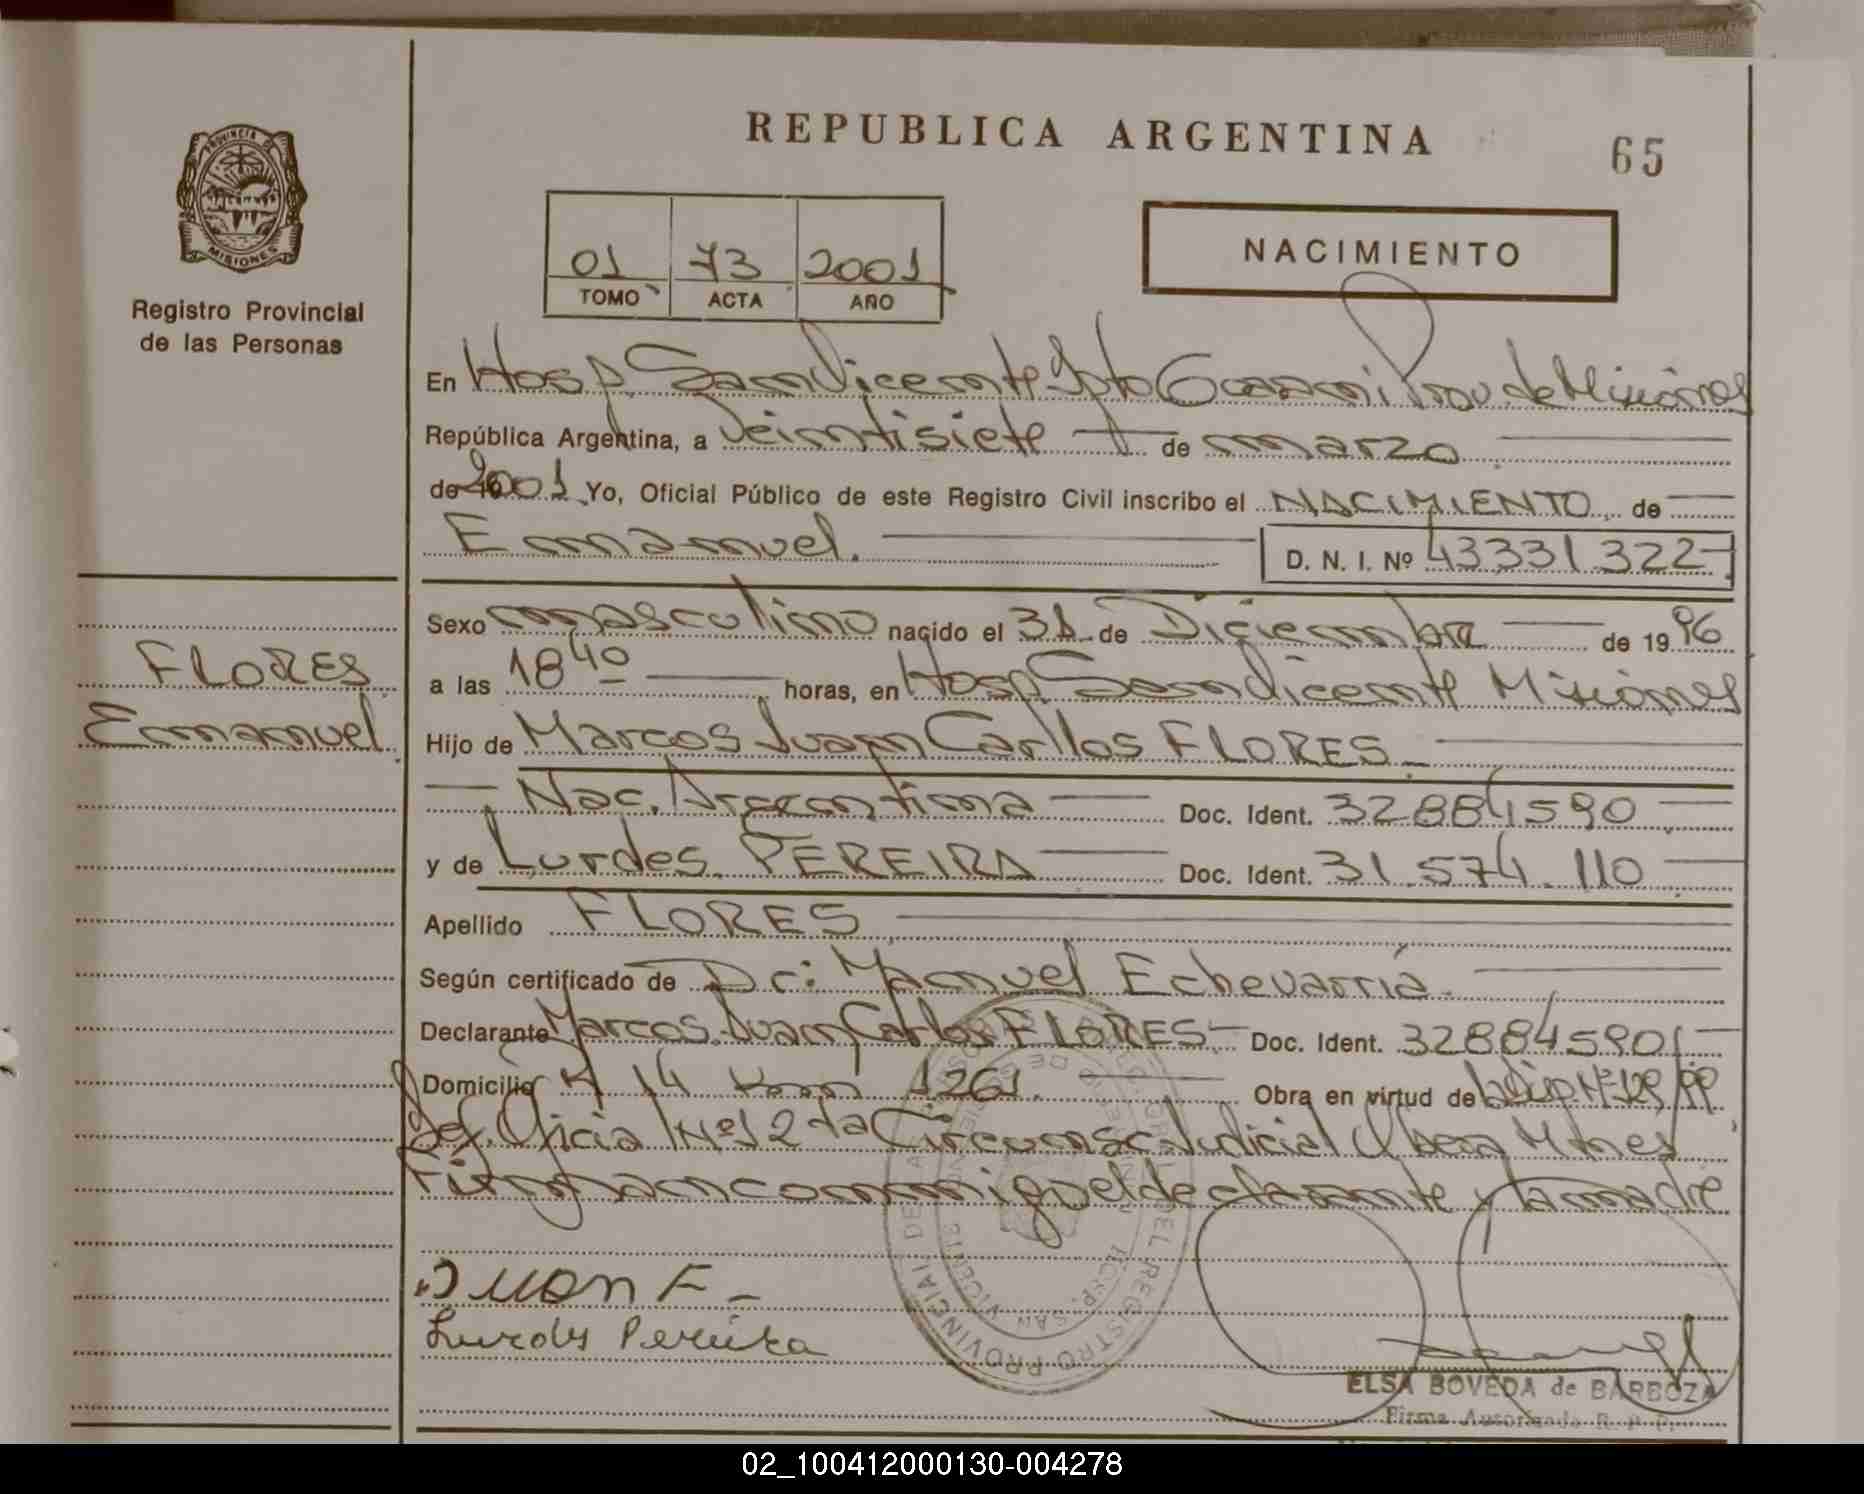 REPUBLICA ARGENTINA
65
PROVINCIA DE
MISIONES
Registro Provincial
de las Personas
01 73 2001
TOMO ACTA AÑO
NACIMIENTO
En Hosp San Vicente Dpto Guarani Prov. de Misiones
República Argentina, a Veintisiete de marzo
de 19 2001 Yo, Oficial Público de este Registro Civil inscribo el NACIMIENTO de
Emanuel. D. N. I. Nº 43331322
FLORES
Emanuel
Sexo masculino nacido el 31 de Diciembre de 1996
a las 18 40 horas, en Hosp San Vicente Misiones
Hijo de Marcos Juan Carllos FLORES
Nac. Argentina Doc. Ident. 32884590
y de Lurdes PEREIRA Doc. Ident. 31.574.110
Apellido FLORES
Según certificado de Dr: Manuel Echevarria
Declarante Marcos Juan Carlos FLORES Doc. Ident. 32884590
Domicilio K 14 1261 Obra en virtud de
Def. Oficial Nº 1 2da Circunsc Judicial Obera Mnes
Firman conmigo el declarante y la madre
Juan F
Lurdes Pereira
REGISTRO PROVINCIAL DE
HOSP. SAN VICENTE
ELSA BOVEDA de BARBOZA
Firma Autorizada R. P. P.
02_100412000130-004278